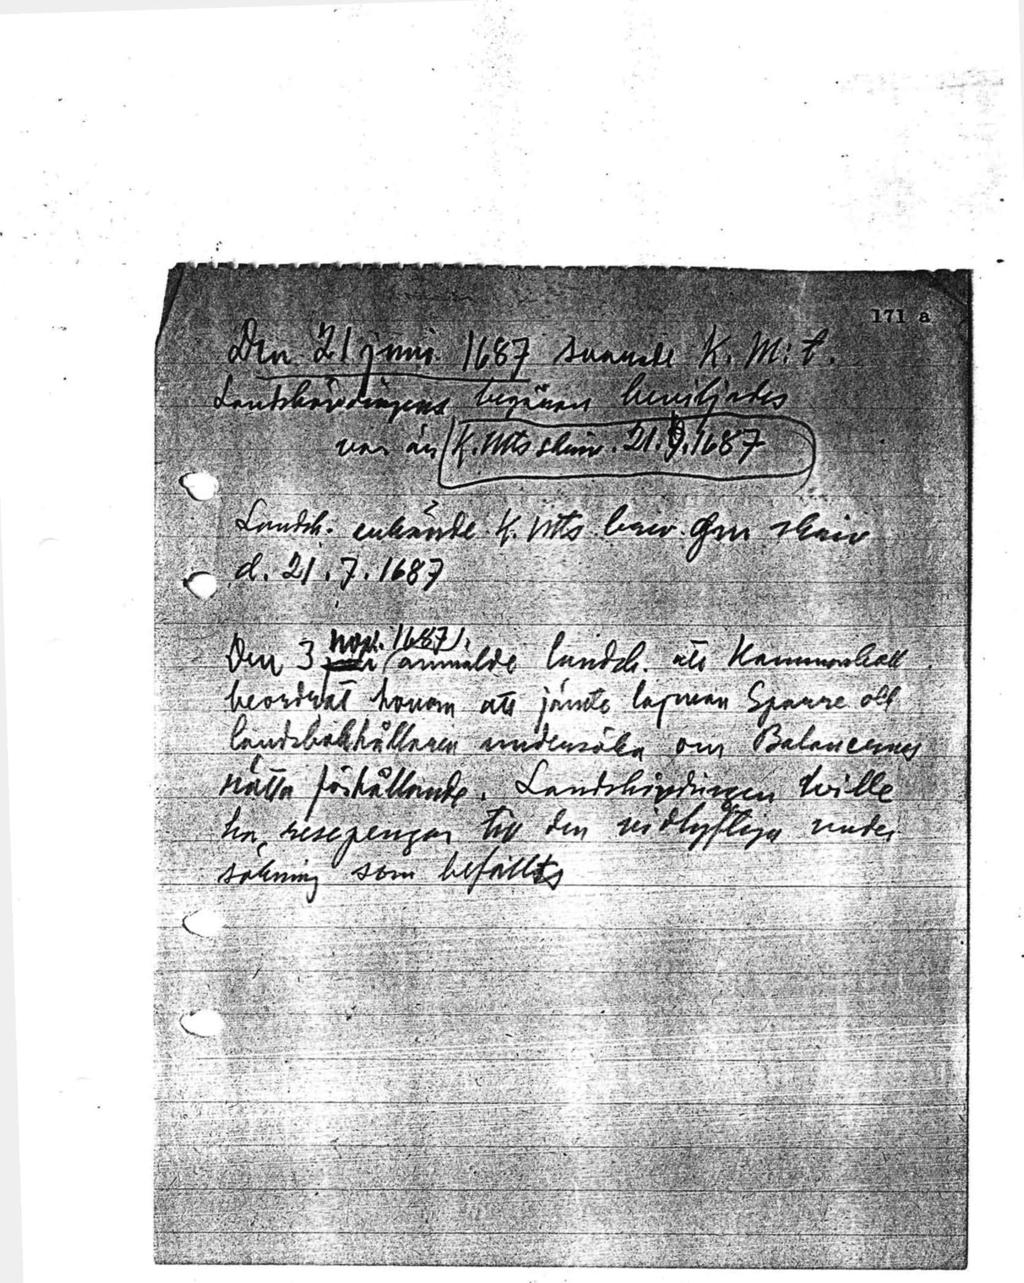 171 a
Den 21 juni 1687 svarade K. M:t.
Landshövdingens begäran beviljades
K. Mts skriv. 21.9.1687
Landsh. erkände K. Mts brev. Gm skriv
d. 21.7.1687
Den 3 nov. 1687 anmälde landsh. att Kammarkoll.
beordrat honom att jämte lagman Sparre och
landsbokhållaren undersöka om Balancernas
rätta förhållande. Landshövdingen ville
ha resepengar till den vidlyftiga under
sökning som befallts